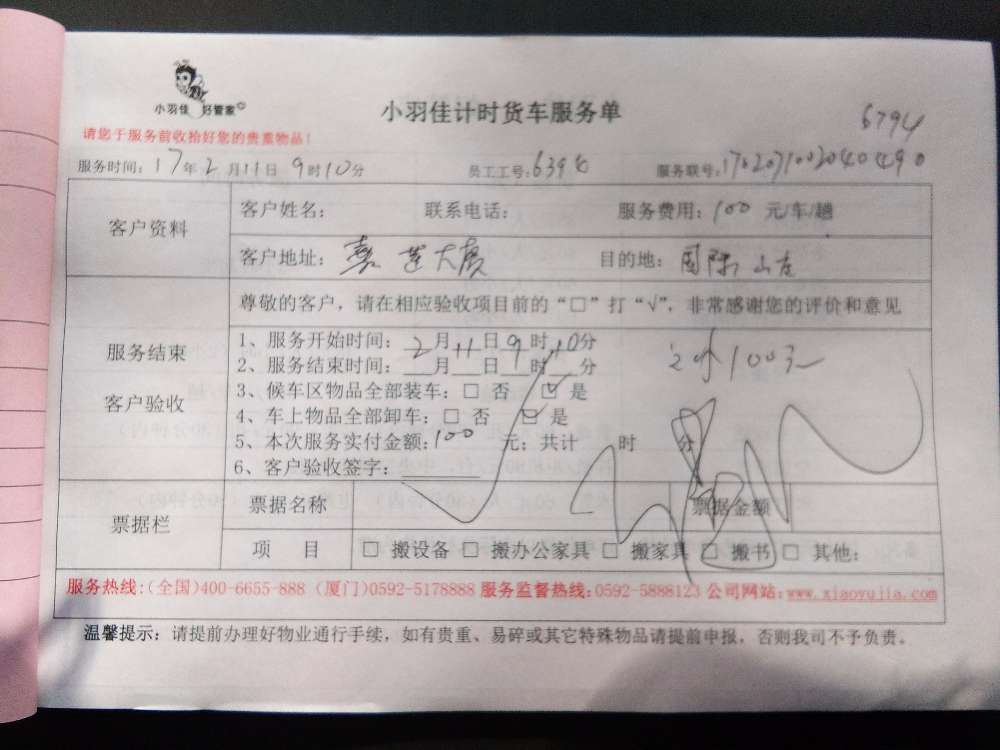 小羽佳 好管家
小羽佳计时货车服务单
6794
请您于服务前收拾好您的贵重物品！
服务时间：17年2月11日9时10分 员工工号：6394 服务联号：1702071002040490
客户资料
客户姓名： 联系电话： 服务费用：100 元/车/趟
客户地址：嘉莲大厦 目的地：国际山庄
尊敬的客户，请在相应验收项目前的“□”打“√”，非常感谢您的评价和意见
服务结束
客户验收
1、服务开始时间：2月11日9时10分
2、服务结束时间：__月__日__时__分
3、候车区物品全部装车：□ 否 ☑ 是
4、车上物品全部卸车：□ 否 ☑ 是
5、本次服务实付金额：100 元；共计 时 分
6、客户验收签字：
票据栏
票据名称 票据金额
项 目 □ 搬设备 □ 搬办公家具 □ 搬家具 □ 搬书 □ 其他：
服务热线：(全国)400-6655-888 (厦门)0592-5178888 服务监督热线：0592-5888123 公司网站：www.xiaoyujia.com
温馨提示：请提前办理好物业通行手续，如有贵重、易碎或其它特殊物品请提前申报，否则我司不予负责。